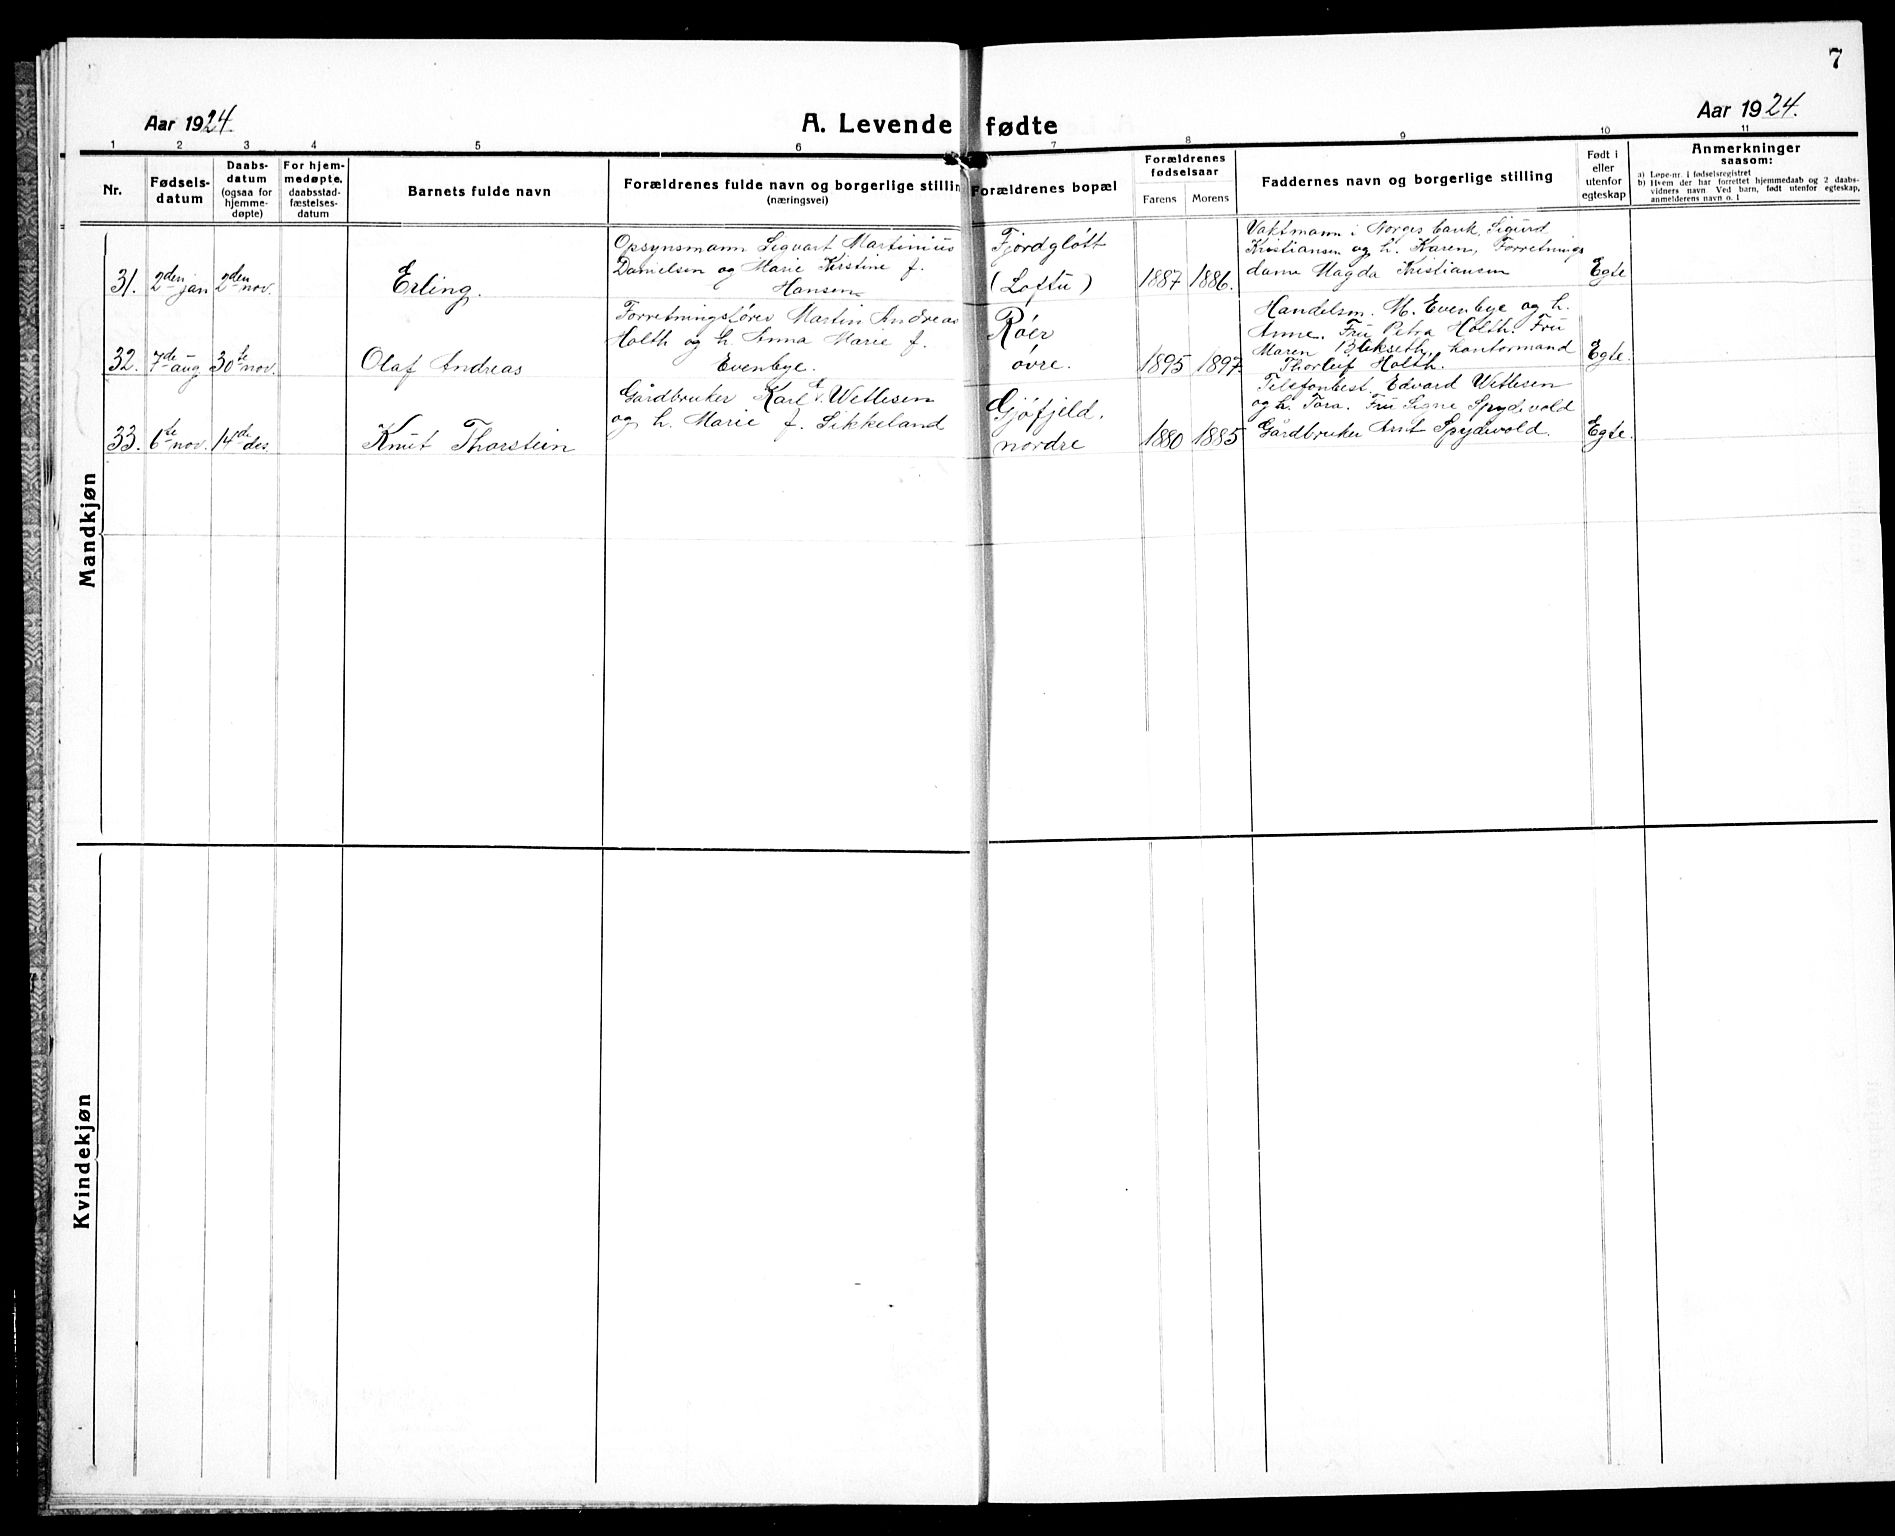 7
Aar 1924.
A. Levende fødte
Aar 1924.
1 2 3 4 5 6 7 8 9 10 11
Nr.
Fødsels-
datum
Daabs-
datum
(ogsaa for
hjemme-
døpte)
For hjem-
medøpte,
daabsstad-
fæstelses-
datum
Barnets fulde navn
Forældrenes fulde navn og borgerlige stilling
(næringsvei)
Forældrenes bopæl
Forældrenes
fødselsaar
Farens
Morens
Faddernes navn og borgerlige stilling
Født i
eller
utenfor
egteskap
Anmerkninger
saasom:
a) Løpe-nr. i fødselsregistret
b) Hvem der har forrettet hjemmedaab og 2 daabs-
vidners navn Ved barn, født utenfor egteskap,
anmelderens navn o. l
Mandkjøn
31. 2den jan 2den nov. Erling.
Opsynsmann Sigvart Martinius
Danielsen og Marie Kirstine f.
Hansen
Fjordgløtt
(Loftu)
1887 1886.
Vaktmann i Norges bank, Sigurd
Kristiansen og h. Karen, Forretnings
dame Magda Kristiansen
Egte
32. 7de aug 30te nov. Olaf Andreas
Forretningsfører Martin Andreas
Holth og h. Anna Marie f.
Evenbye.
Röer
övre.
1895 1897
Handelsm. M. Evenbye og h.
Anne. Fru Petra Holth. Fru
Maren kontormand
Thorleif Holth.
Egte.
33. 6te nov. 14de des. Knut Thorstein
Gårdbruker Karl E. Wetlesen
og h. Marie f. Sikkeland
Gjöfjeld.
nordre
1880 1885
Telefonbest. Edvard Wetlesen
og h. Tora. Fru Signe Spydevold
Gårdbruker Arnt Spydevold.
Egte.
Kvindekjøn